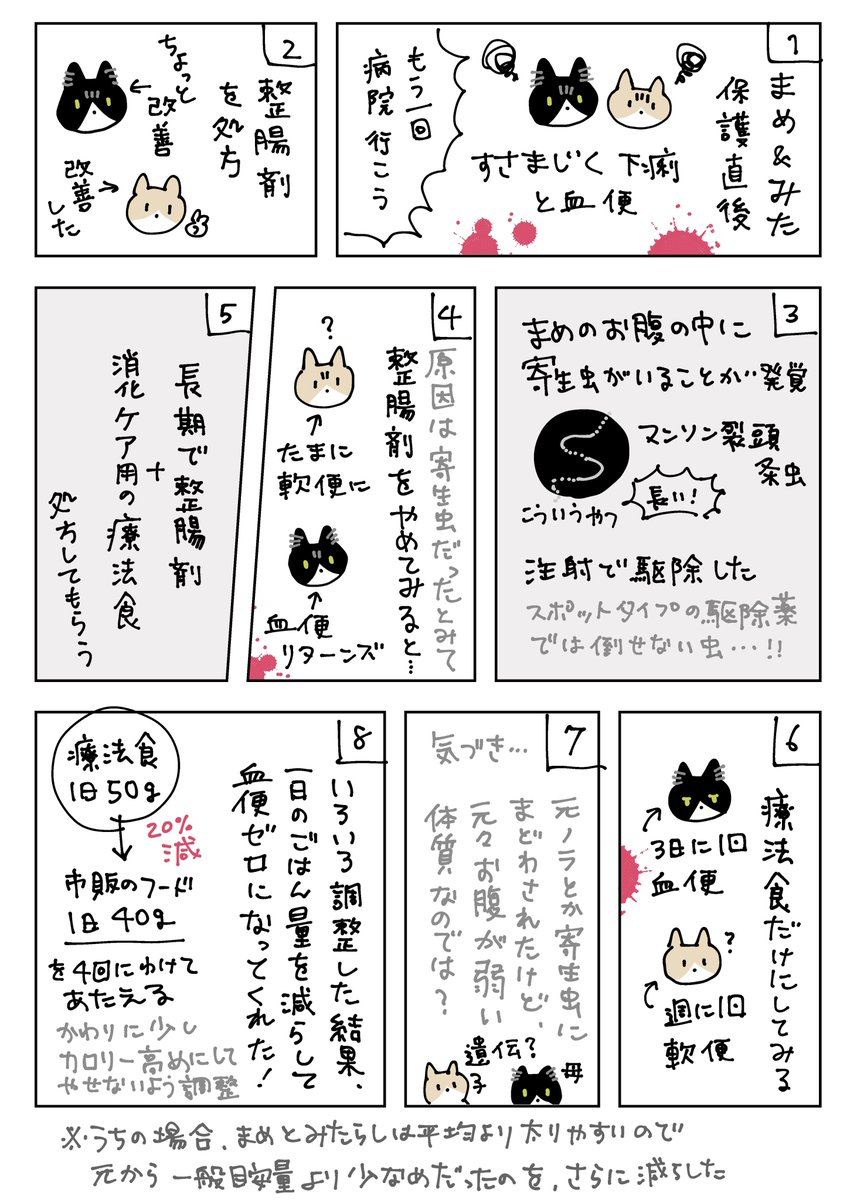 1
まめ&みた
保護直後
すさまじく下痢
と血便
もう一回
病院行こう
2
整腸剤
を処方
ちょっと
改善
改善
した
3
まめのお腹の中に
寄生虫がいることが発覚
マンソン裂頭
条虫
長い!
こういうやつ
注射で駆除した
スポットタイプの駆除薬
では倒せない虫…!!
4
原因は寄生虫だったとみて
整腸剤をやめてみると…
?
たまに
軟便に
血便
リターンズ
5
長期で整腸剤
+
消化ケア用の療法食
処方してもらう
6
療法食だけにしてみる
3日に1回
血便
?
週に1回
軟便
7
気づき…
元ノラとか寄生虫に
まどわされたけど、
元々お腹が弱い
体質なのでは?
遺伝?
母
子
8
いろいろ調整した結果、
一日のごはん量を減らして
血便ゼロになってくれた!
療法食
1日50g
20%
減
市販のフード
1日40g
を4回にわけて
あたえる
かわりに少し
カロリー高めにして
やせないよう調整
※うちの場合、まめとみたらしは平均より太りやすいので
元から一般目安量より少なめだったのを、さらに減らした